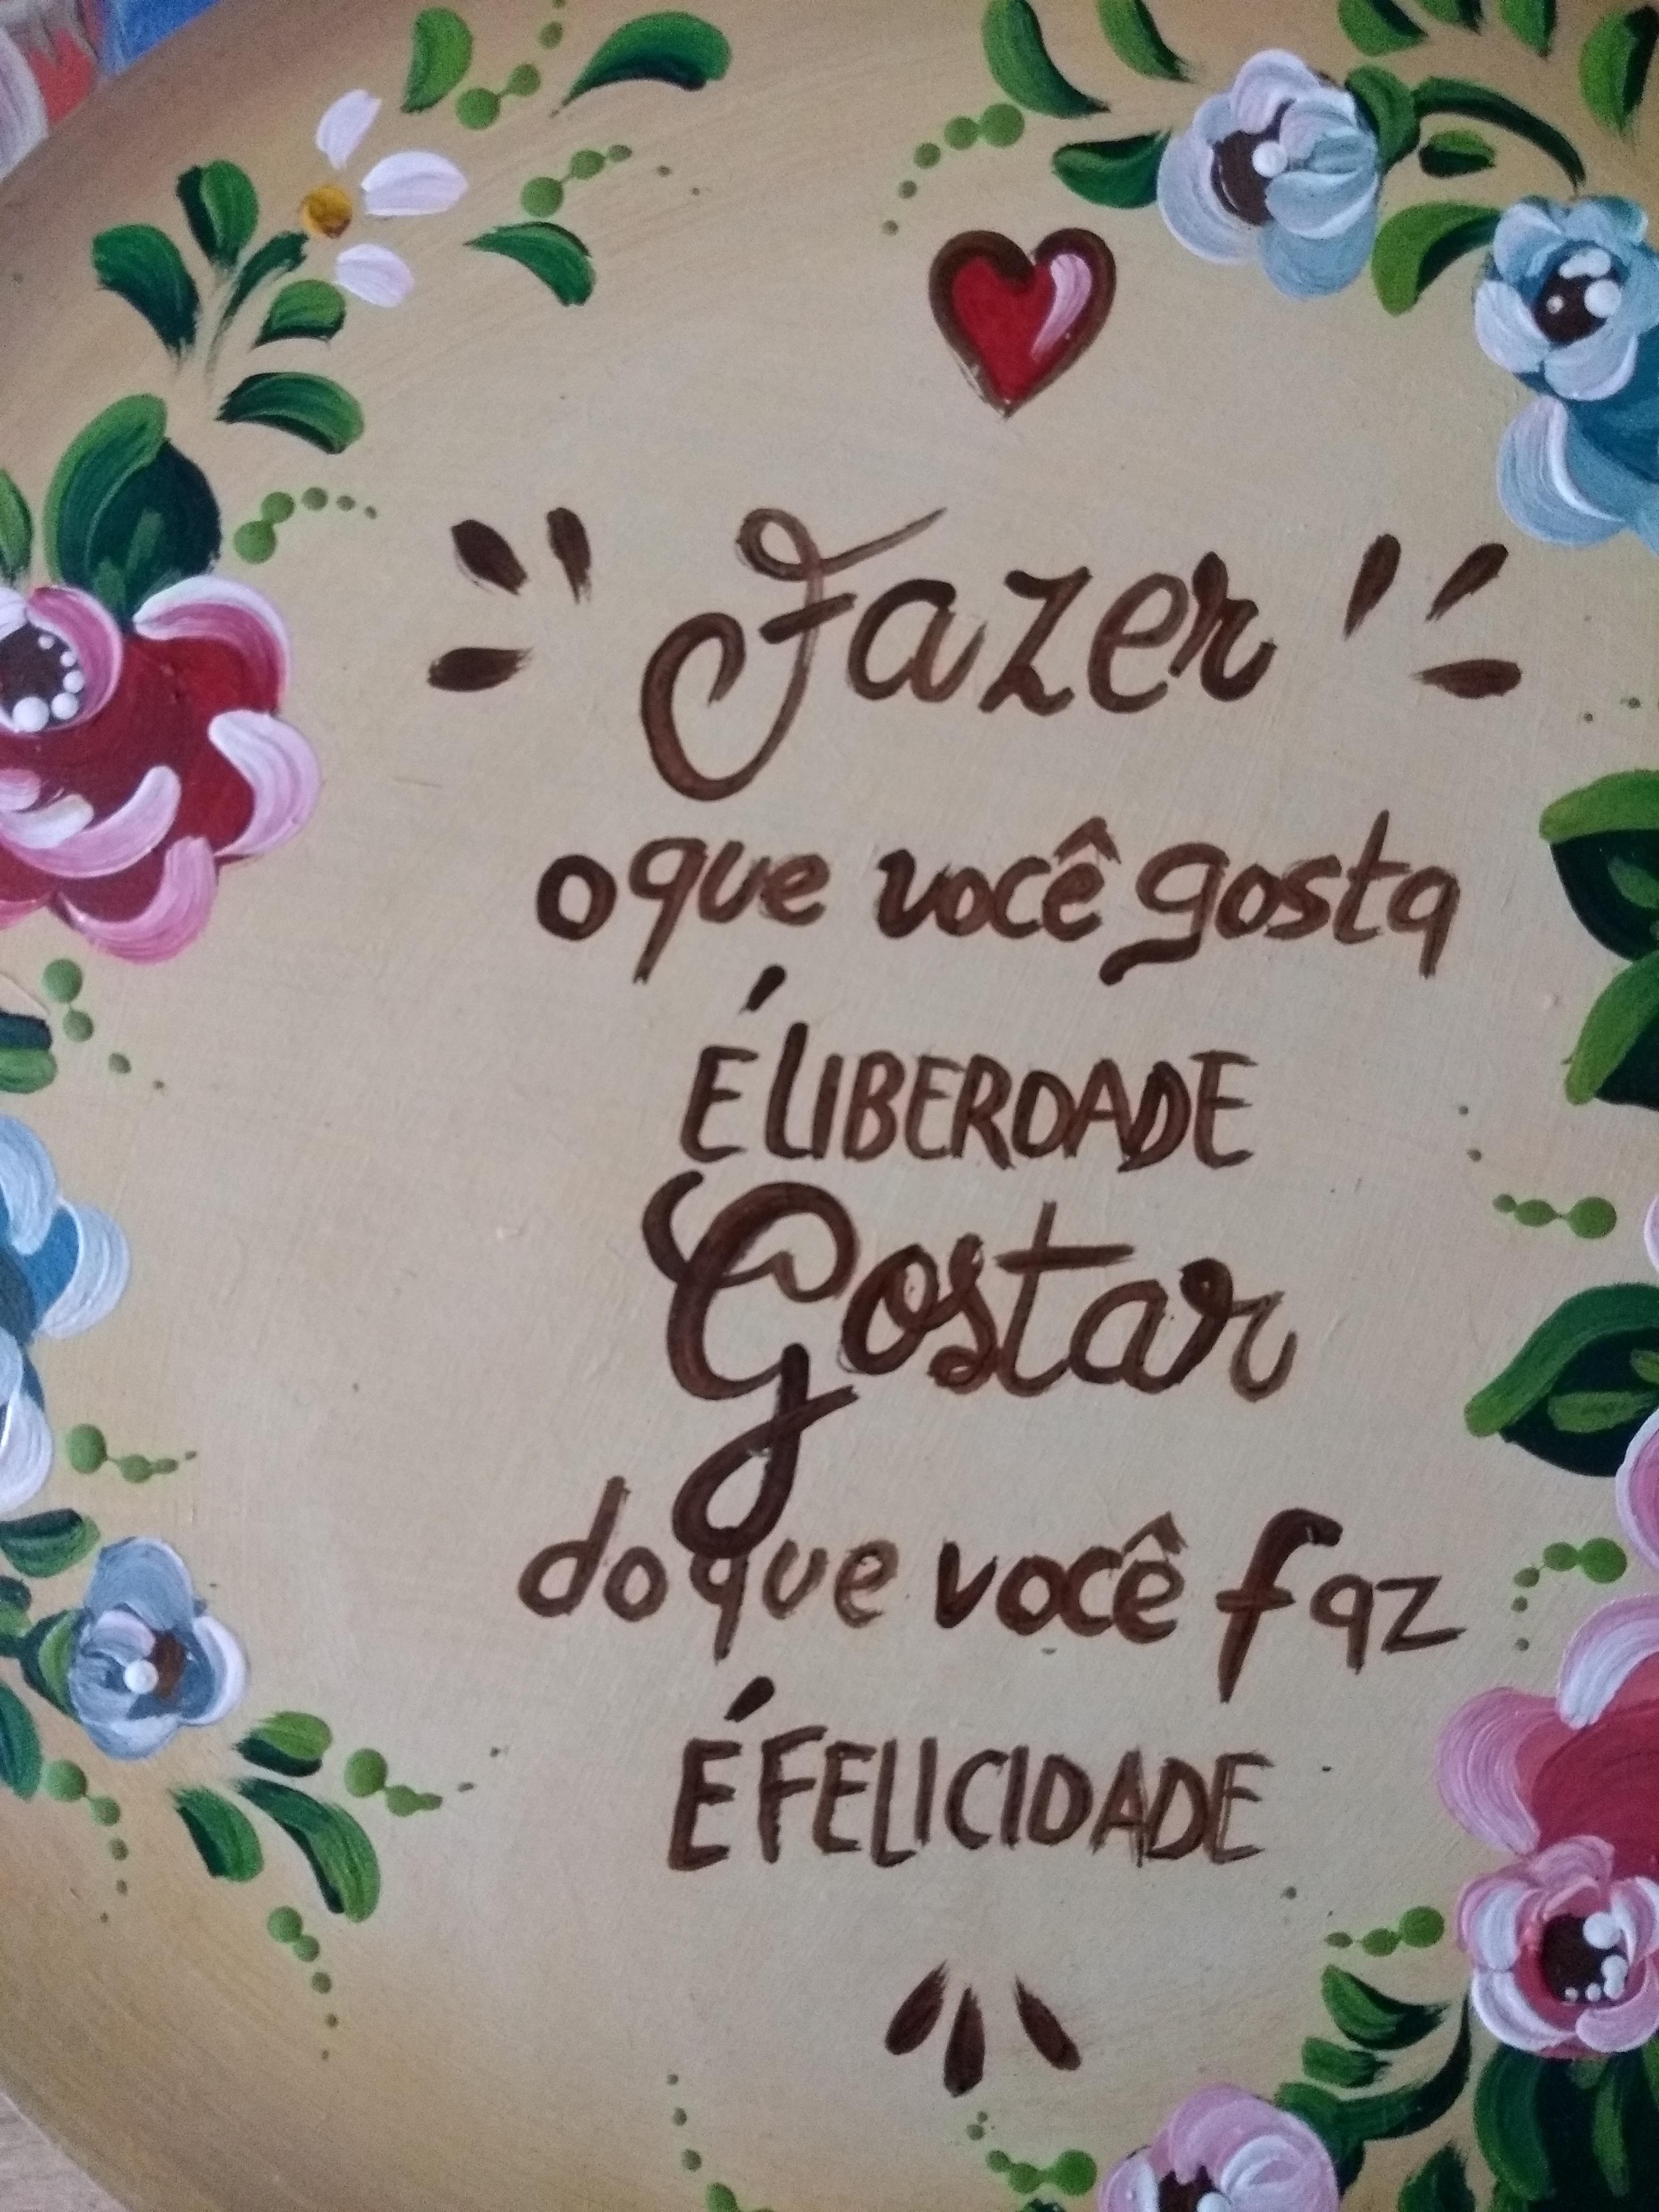 Fazer
o que você gosta
É LIBERDADE
Gostar
do que você faz
É FELICIDADE